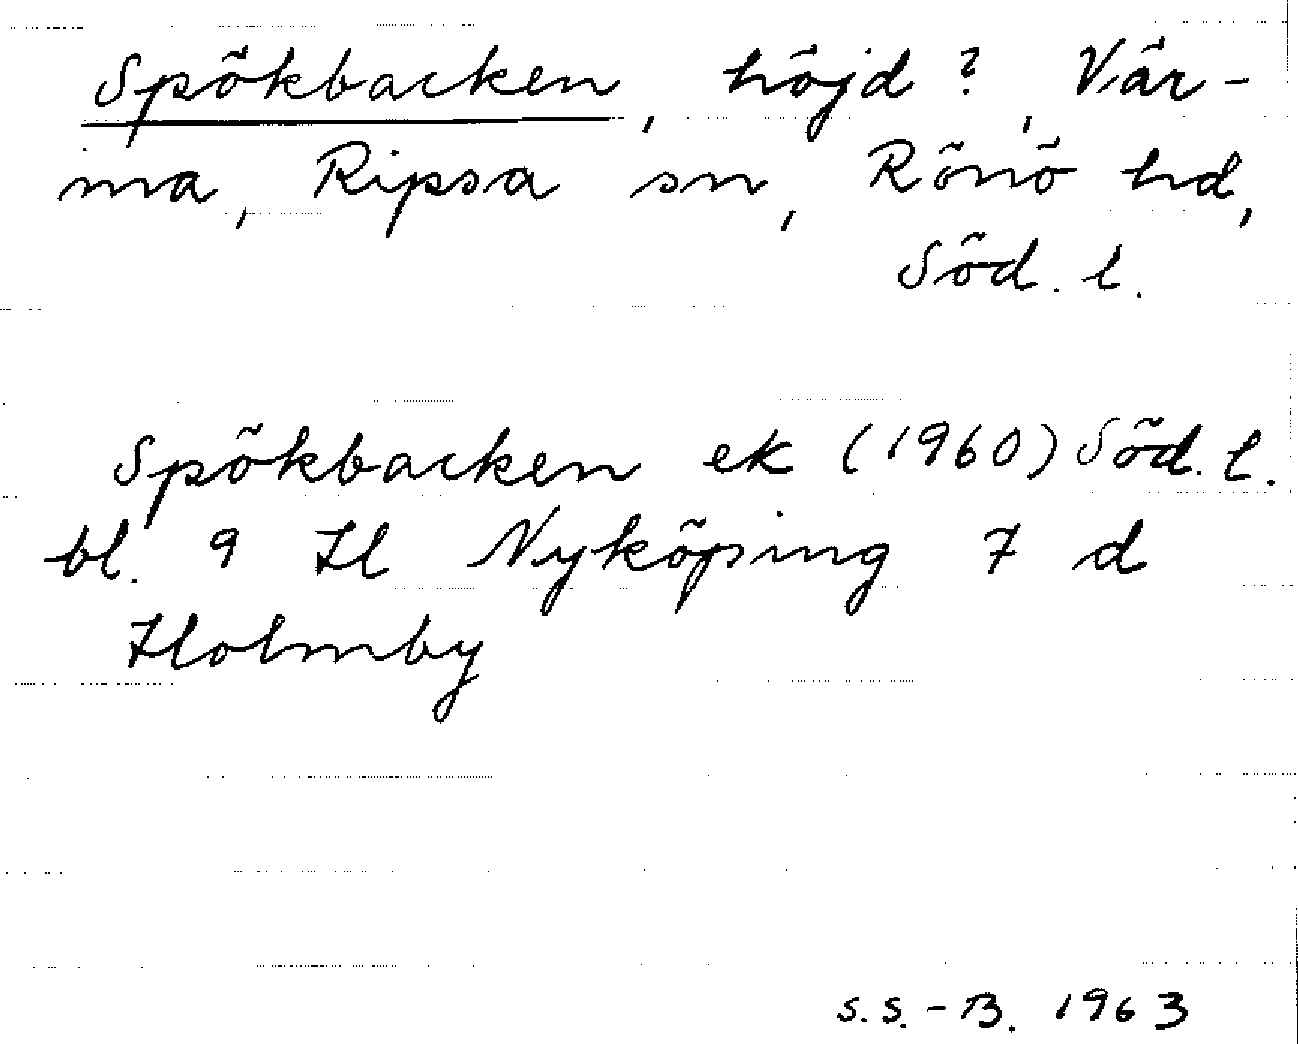 Spökbacken, höjd?, Vär-
ma, Ripsa sn, Rönö hd,
Söd. l.
Spökbacken ek (1960) Söd. l.
bl. 9 H Nyköping 7 d
Holmby
S.S.-B. 1963